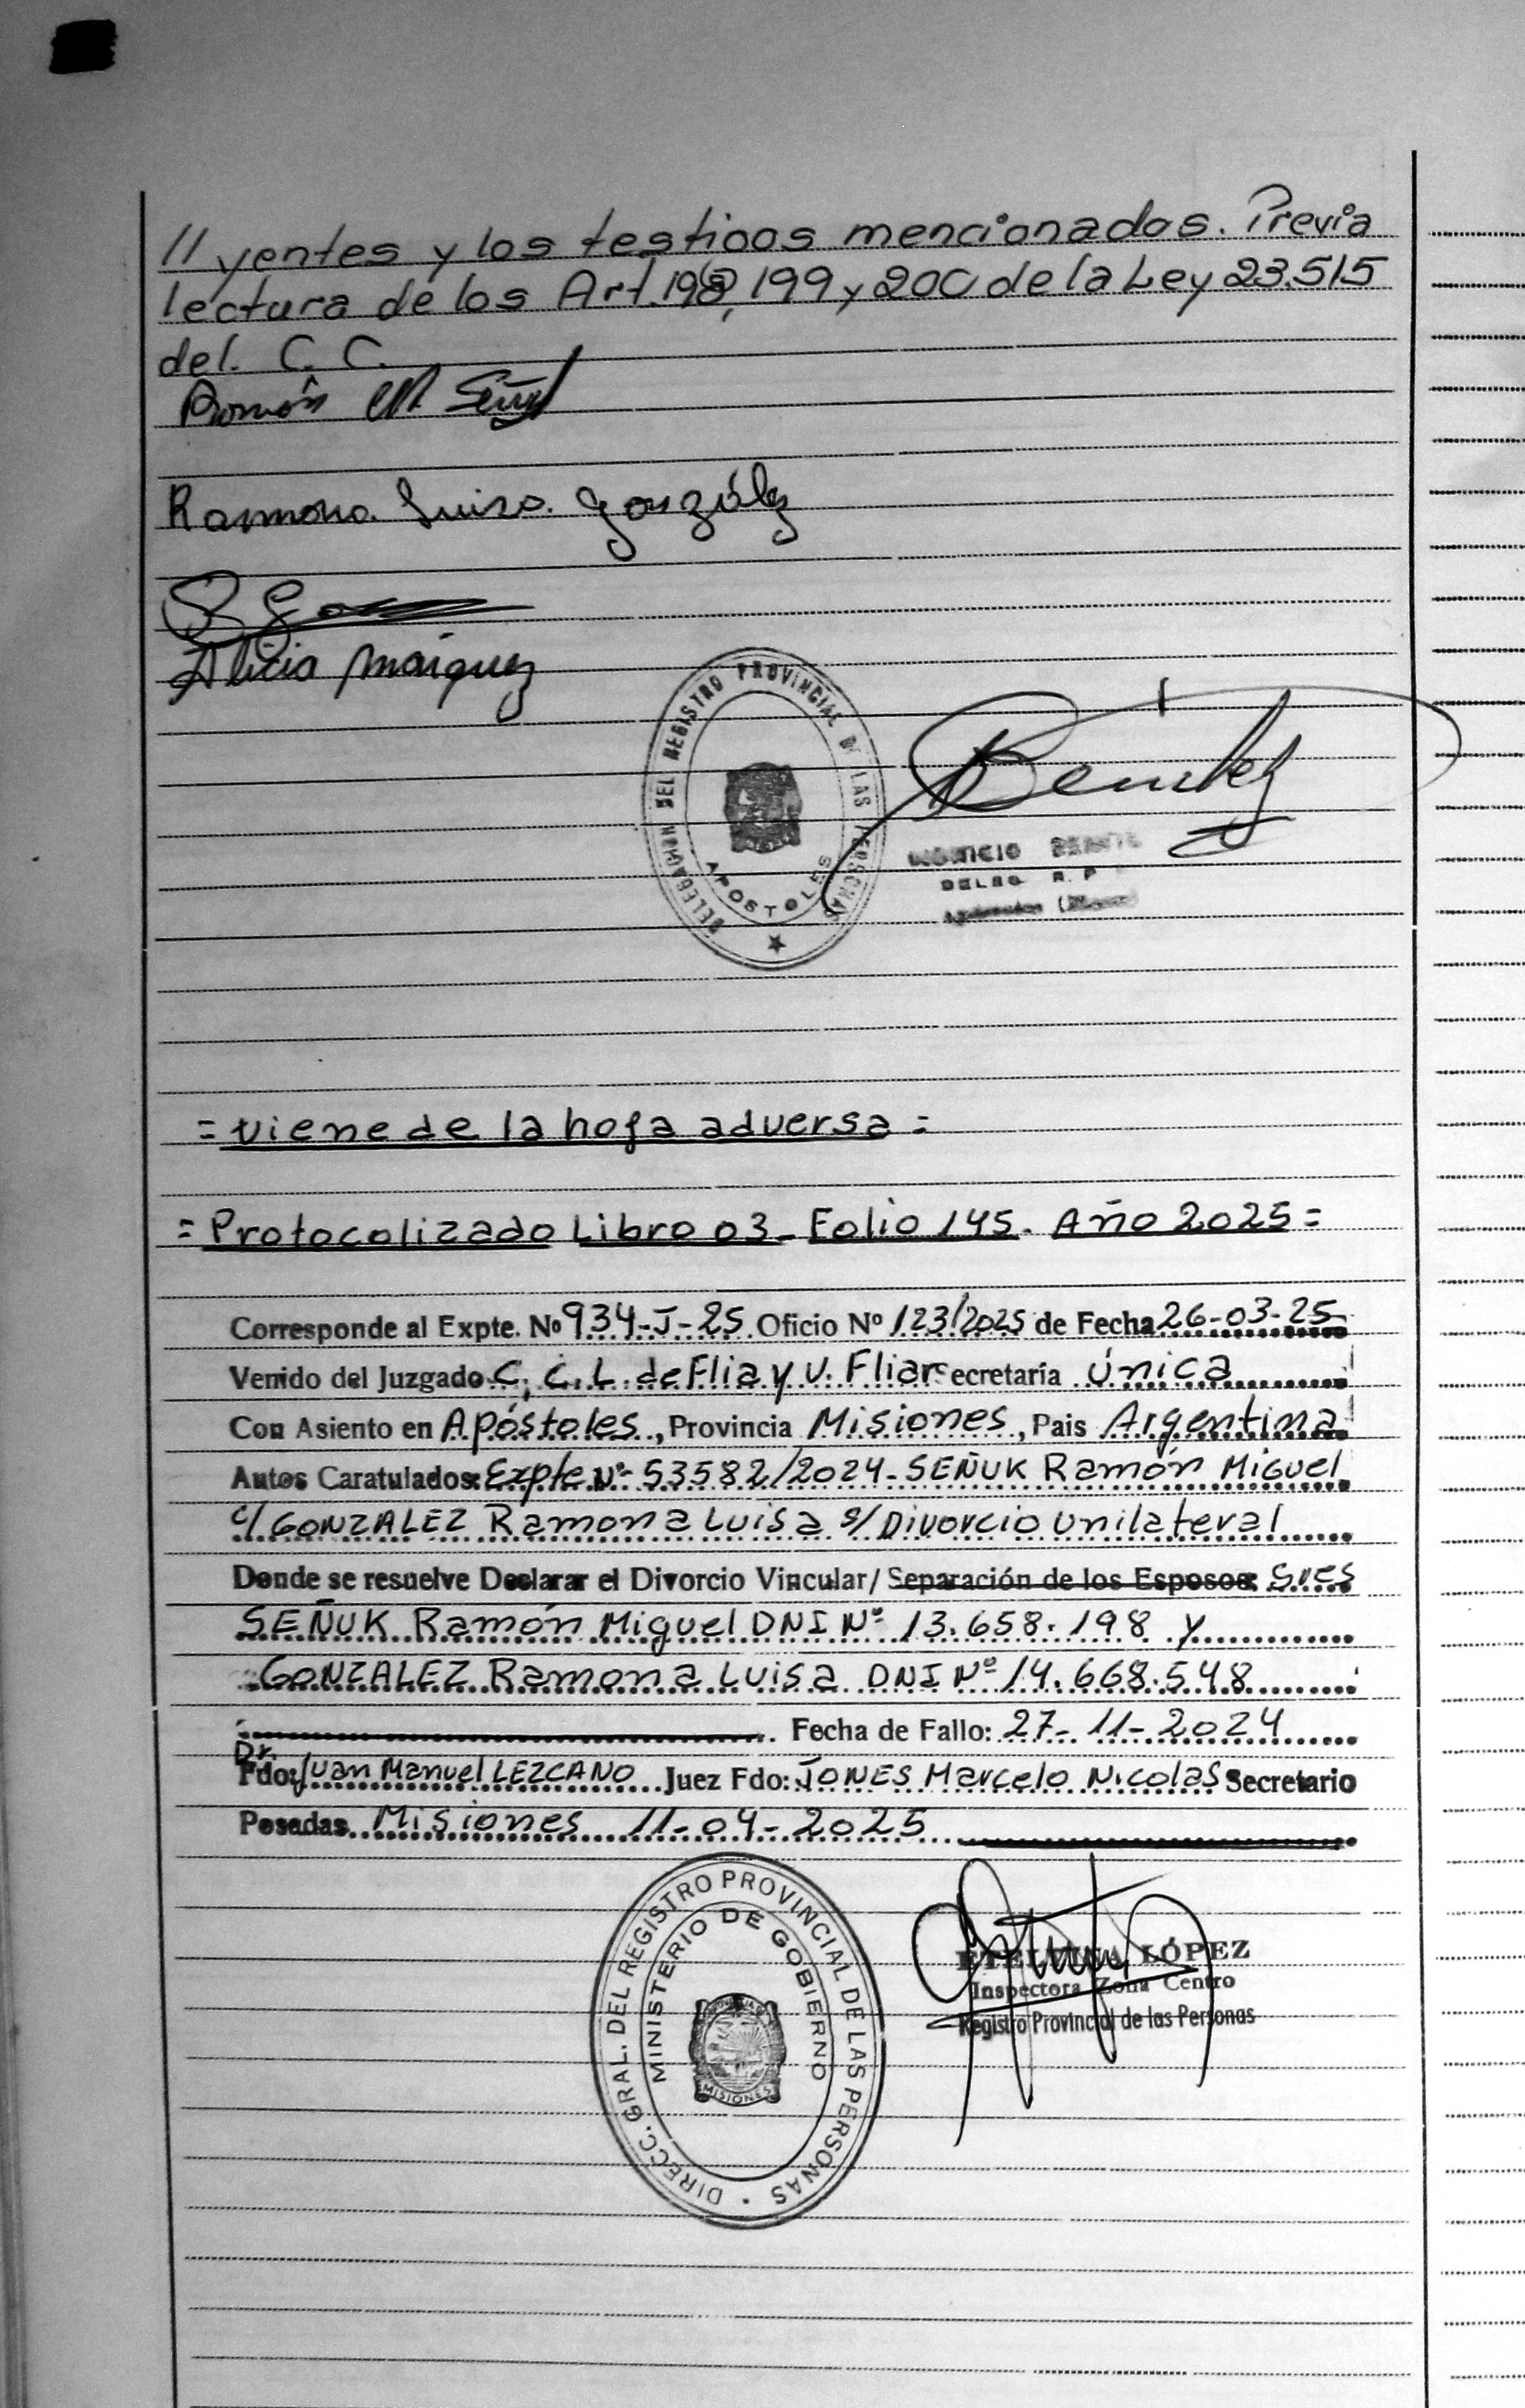 // yentes y los testigos mencionados. Previa
lectura de los Art. 198, 199 y 200 de la Ley 23.515
del. C. C.
Ramón M. Señuk
Ramona Luisa González
Alicia Márquez
DELEGACION DEL REGISTRO PROVINCIAL DE LAS PERSONAS
APOSTOLES
Benitez
DELEG. R. P.
= viene de la hoja adversa =
= Protocolizado Libro 03 - Folio 145. Año 2025 =
Corresponde al Expte. Nº 934-J-25 Oficio Nº 123/2025 de Fecha 26-03-25
Venido del Juzgado C, C. L. de Flia y V. Fliar Secretaría única
Con Asiento en Apóstoles, Provincia Misiones, Pais Argentina
Autos Caratulados: Expte Nº 53582/2024 - SEÑUK Ramón Miguel
c/ GONZALEZ Ramona Luisa s/ Divorcio unilateral
Donde se resuelve Declarar el Divorcio Vincular / Separación de los Esposos: Sres
SEÑUK Ramón Miguel DNI Nº 13.658.198 y
GONZALEZ Ramona Luisa DNI Nº 14.668.548
Fecha de Fallo: 27-11-2024
Dr.
Fdo: Juan Manuel LEZCANO Juez Fdo: JONES Marcelo Nicolas Secretario
Posadas Misiones 11-04-2025
DIRECC. GRAL. DEL REGISTRO PROVINCIAL DE LAS PERSONAS
MINISTERIO DE GOBIERNO
MISIONES
ETELVINA LÓPEZ
Inspectora Zona Centro
Registro Provincial de las Personas